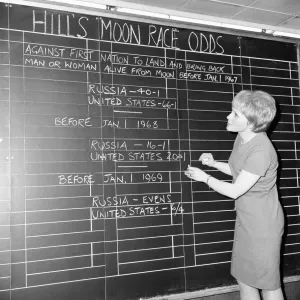 HILL'S MOON RACE ODDS
AGAINST FIRST NATION TO LAND AND BRING BACK
MAN OR WOMAN ALIVE FROM MOON BEFORE JAN. 1 1967
RUSSIA - 40-1
UNITED STATES - 66-1
BEFORE JAN. 1 1968
RUSSIA - 16-1
UNITED STATES 20-1
BEFORE JAN. 1 1969
RUSSIA - EVENS
UNITED STATES -